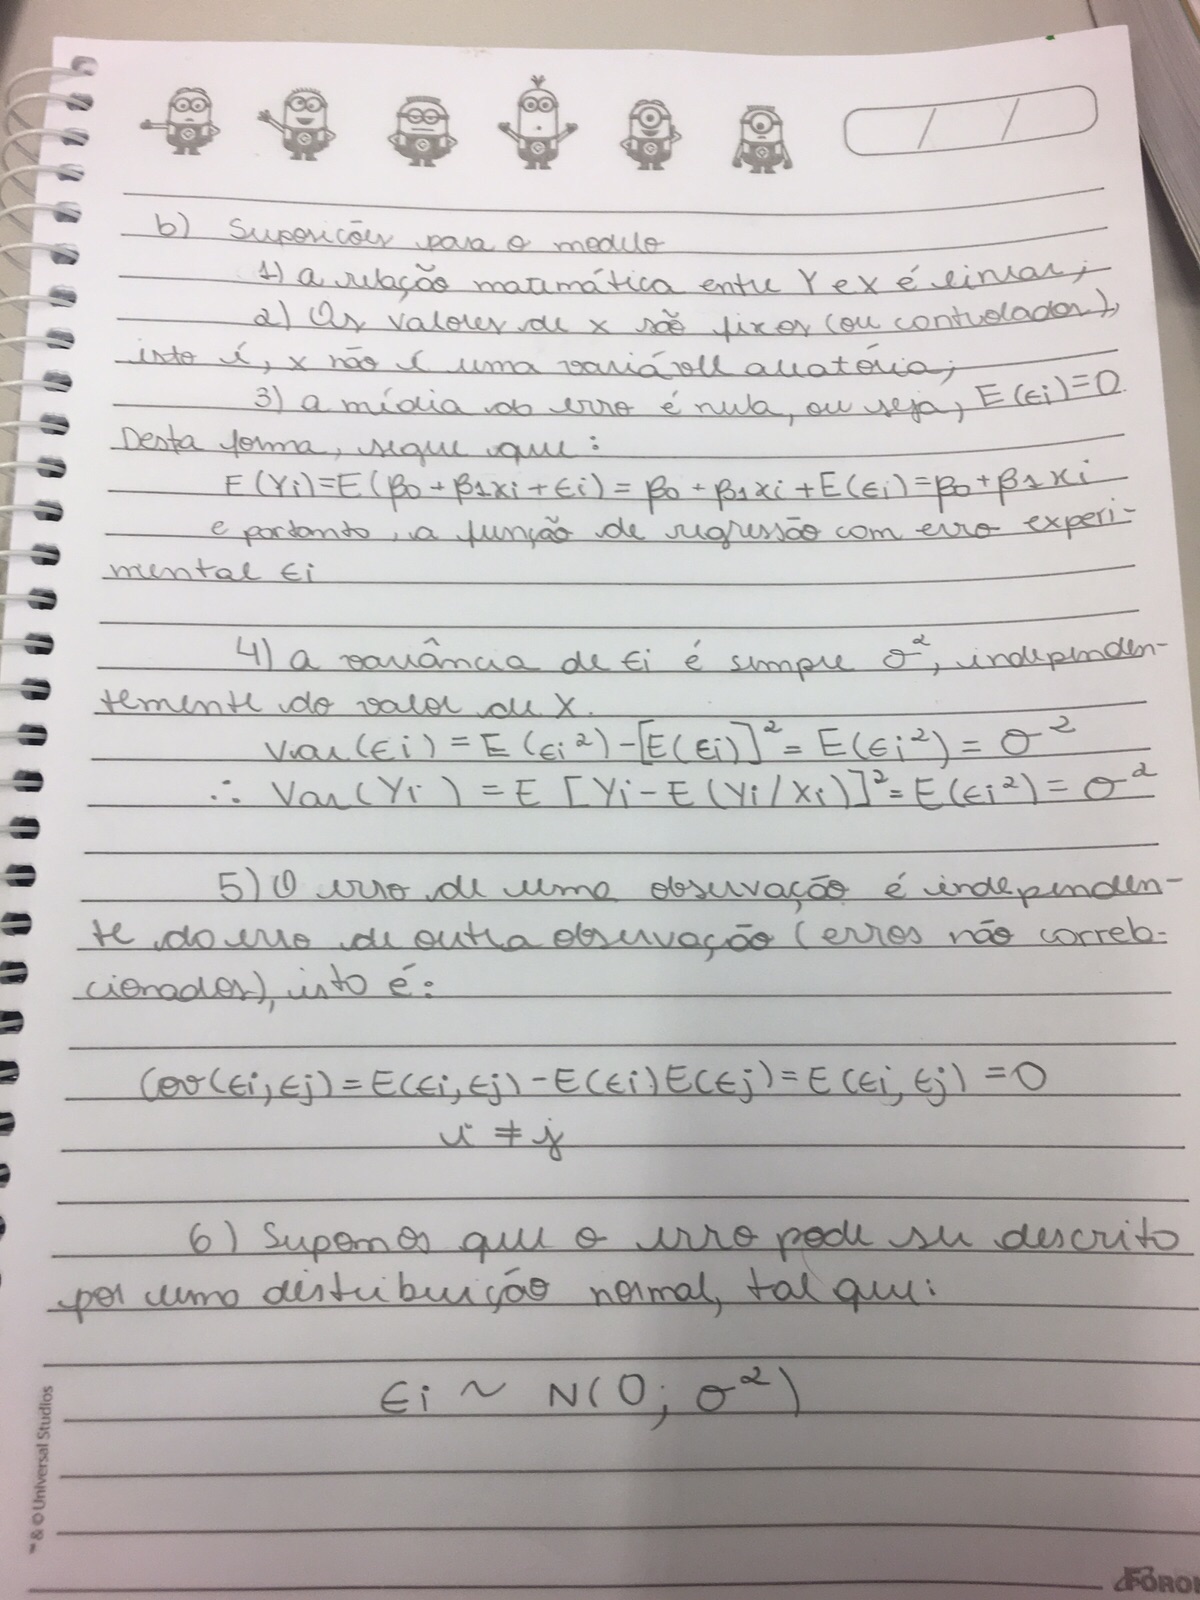 b) Suposicões para o modelo
1) a relação matemática entre Y e X é linear;
2) Os valores de x são fixos (ou controlados),
isto é, x não é uma variável aleatória;
3) a média do erro é nula, ou seja, E(ϵi)=0.
Desta forma, segue que:
E(Yi)=E(β0+β1xi+ϵi)=β0+β1xi+E(ϵi)=β0+β1xi
e portanto, a função de regressão com erro experi-
mental ϵi
4) a variância de ϵi é sempre σ², independen-
temente do valor de X.
Var(ϵi)=E(ϵi²)-[E(ϵi)]²=E(ϵi²)=σ²
∴ Var(Yi)=E[Yi-E(Yi/Xi)]²=E(ϵi²)=σ²
5) O erro de uma observação é independen-
te do erro de outra observação (erros não correla-
cionados), isto é:
Cov(ϵi,ϵj)=E(ϵi,ϵj)-E(ϵi)E(ϵj)=E(ϵi,ϵj)=0
i≠j
6) Supomos que o erro pode ser descrito
por uma distribuição normal, tal que:
ϵi ~ N(0; σ²)
™ & © Universal Studios